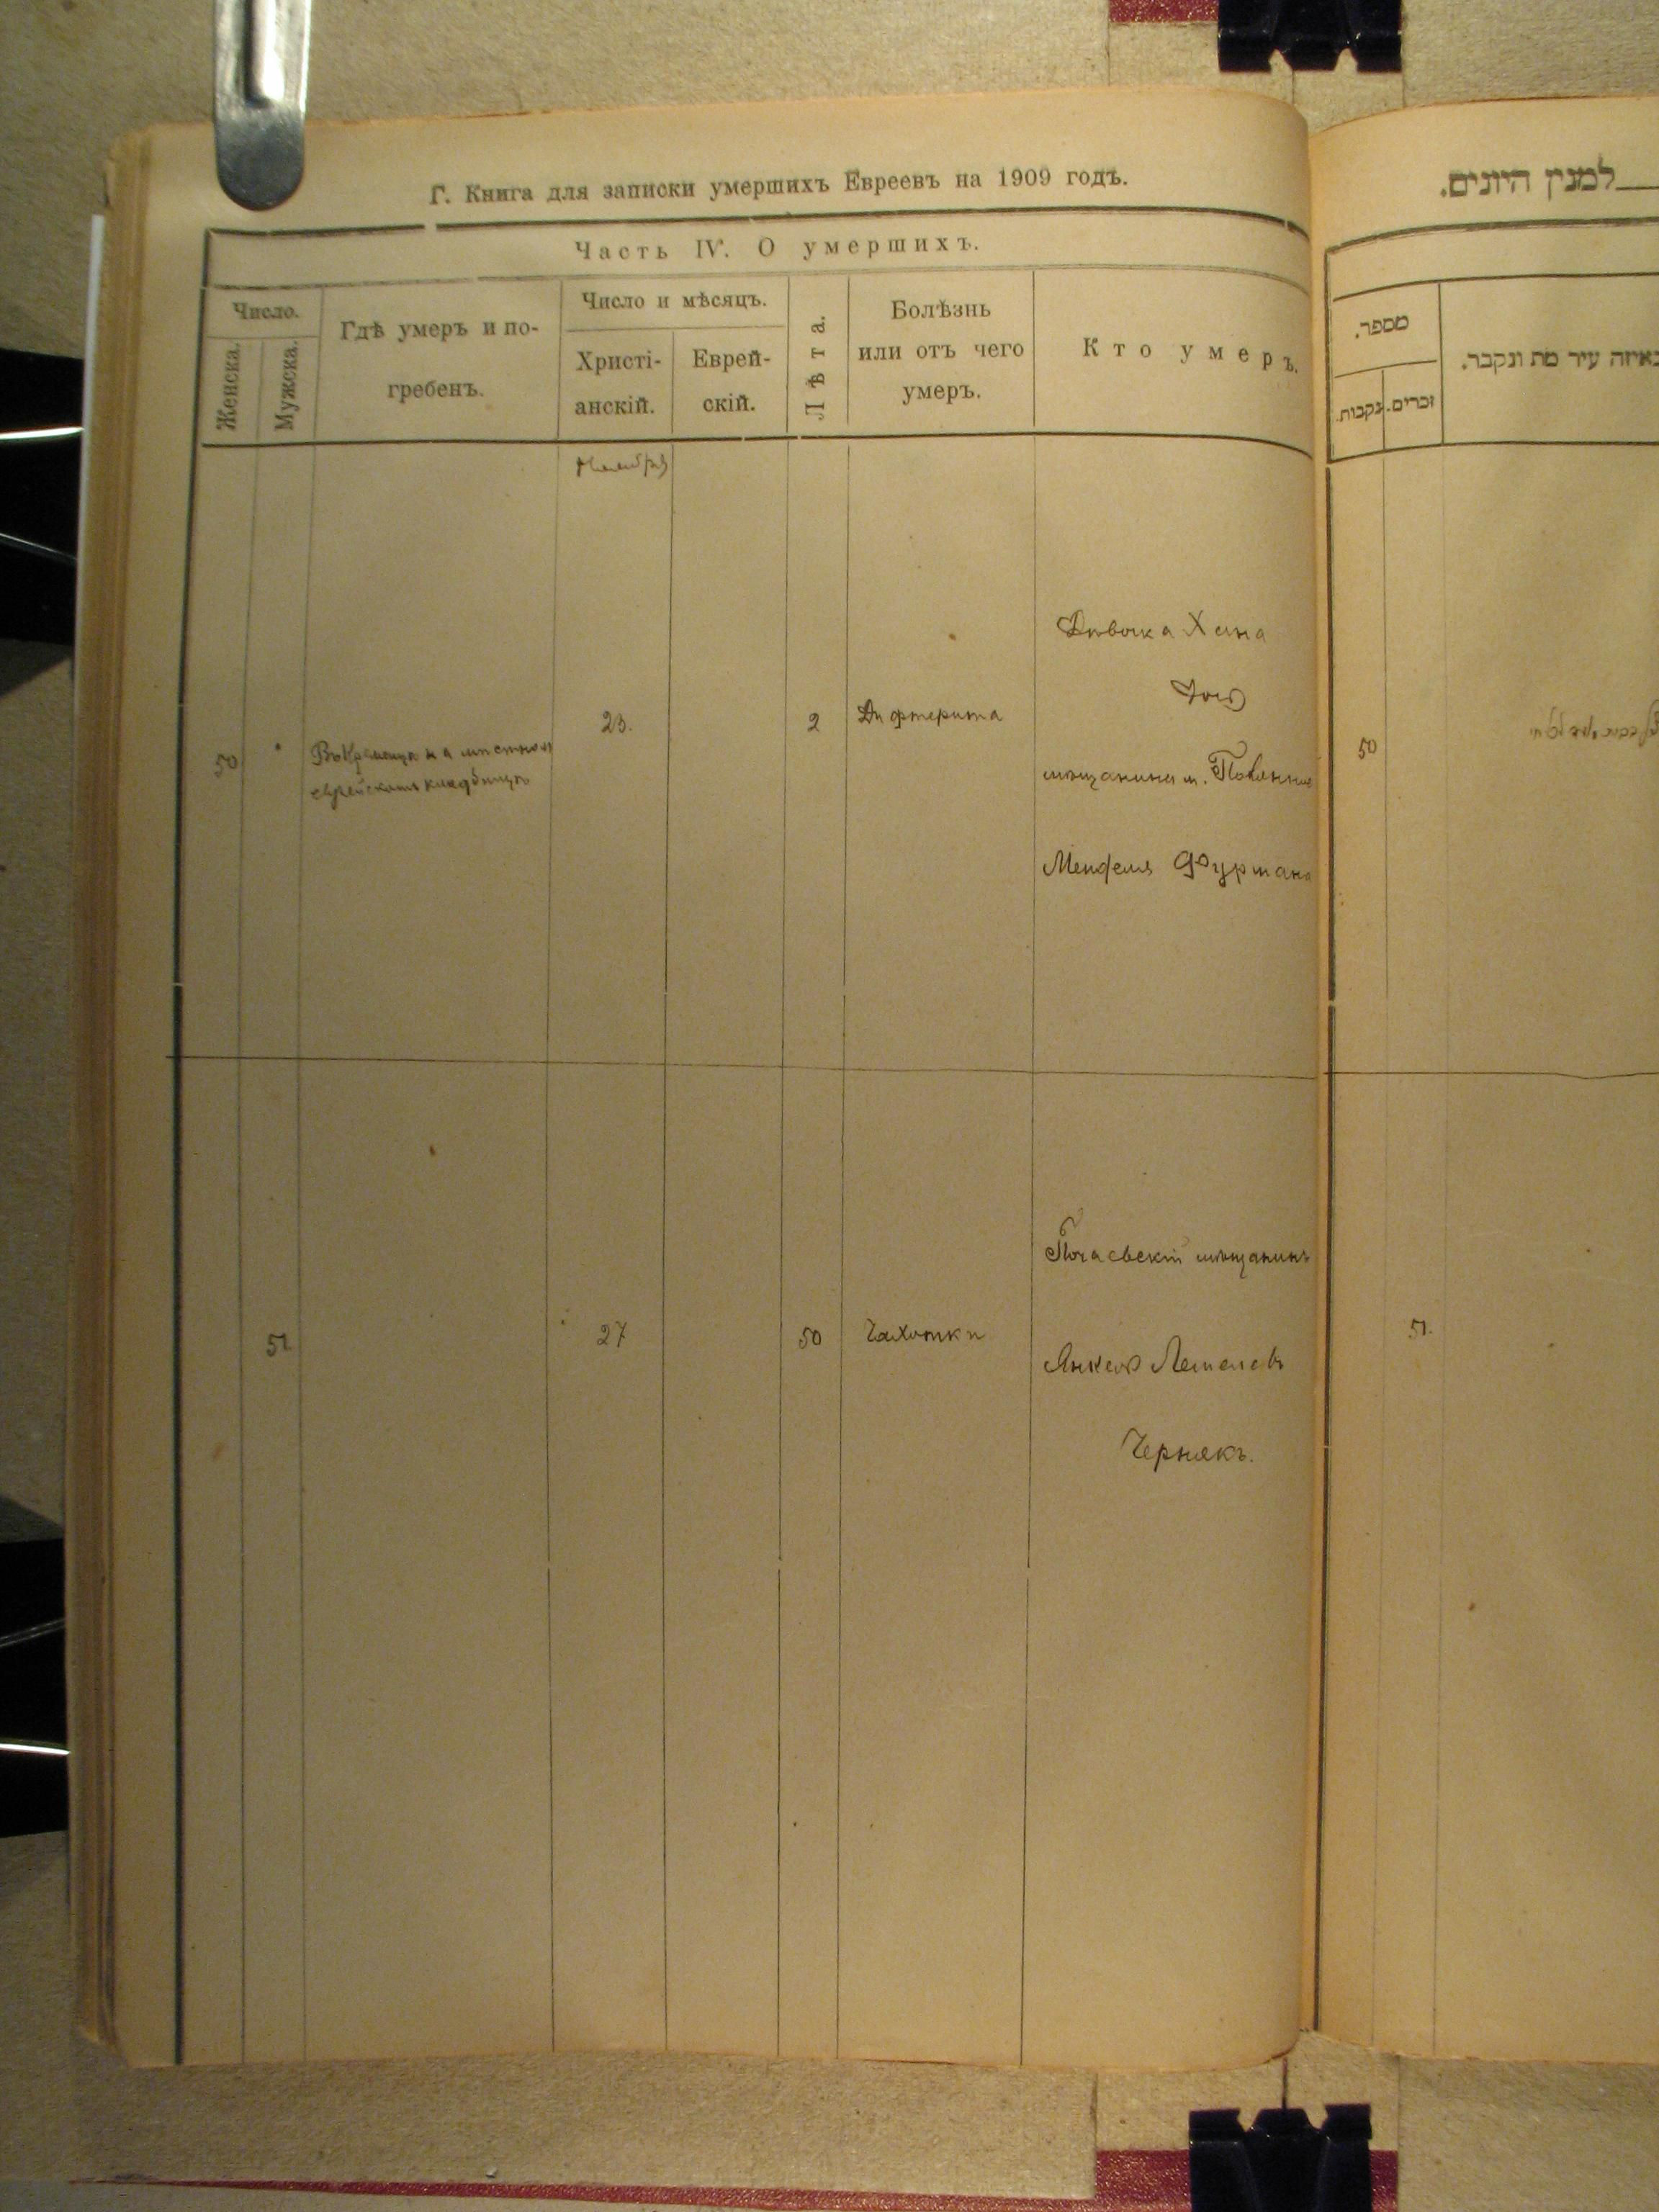 Г. Книга для записки умершихъ Евреевъ на 1909 годъ.
Часть IV. О умершихъ.
Число.
Женска.
Мужска.
Гдѣ умеръ и по-
гребенъ.
Число и мѣсяцъ.
Христі-
анскій.
Еврей-
скій.
Лѣта.
Болѣзнь
или отъ чего
умеръ.
Кто умеръ.
50
на мѣстномъ
еврейскомъ кладбищѣ
23.
2
Дифтерита
Дѣвочка Хана
дочь
мѣщанина м.
Менделя Фурмана
51
27
50
Чахотки
Почаевскій мѣщанинъ
Янкель
Чернякъ.
למנין היונים.
מספר.
נקבות.
זכרים.
באיזה עיר מת ונקבר.
50
51.